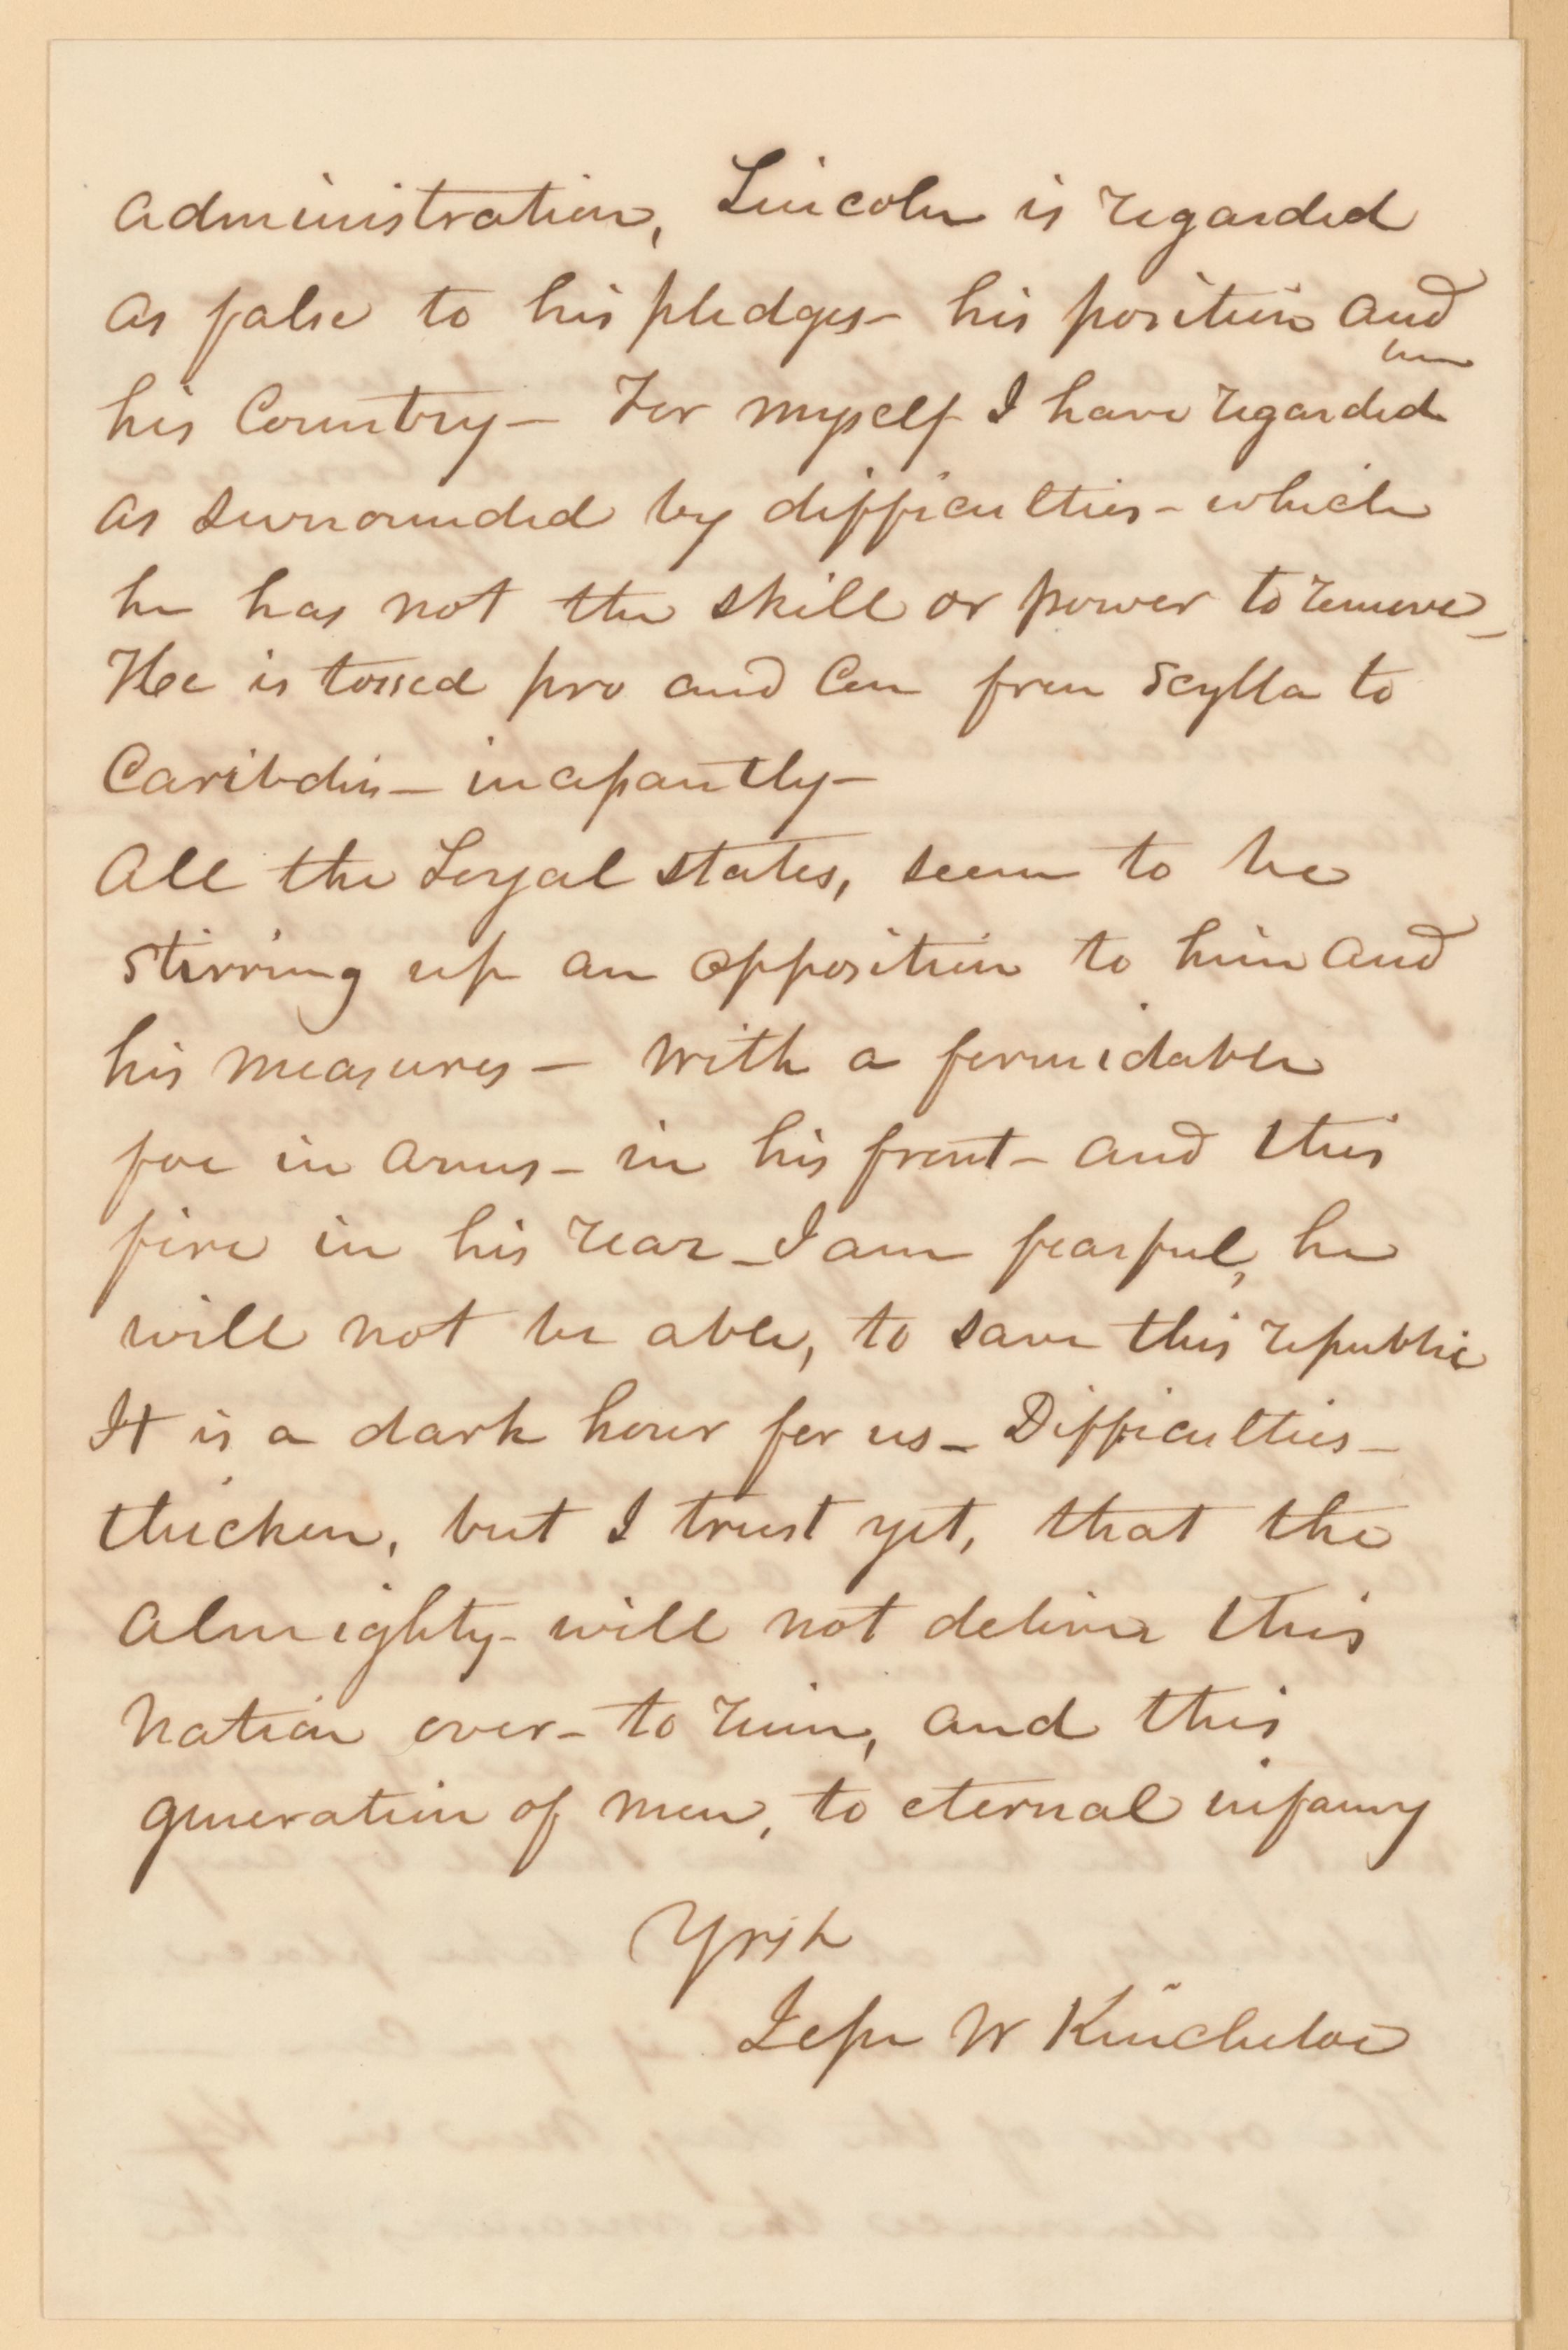 administration, Lincoln is regarded
as false to his pledges- his position and
him
his Country- For myself I have regarded
as surrounded by difficulties- which
he has not the skill or power to remove-
Hee is tossed pro and Con from Scylla to
Caribdis- incessantly-
All the Loyal states, seem to be
stirring up an opposition to him and
his measures- With a formidable
foe in arms- in his front- and this
fire in his rear- I am fearful, he
will not be able, to save this republic
It is a dark hour for us- Difficulties-
thicken, but I trust yet, that the
Almighty- will not deliver this
Nation over- to ruin, and this
generation of men, to eternal infamy
Jesse W Kincheloe